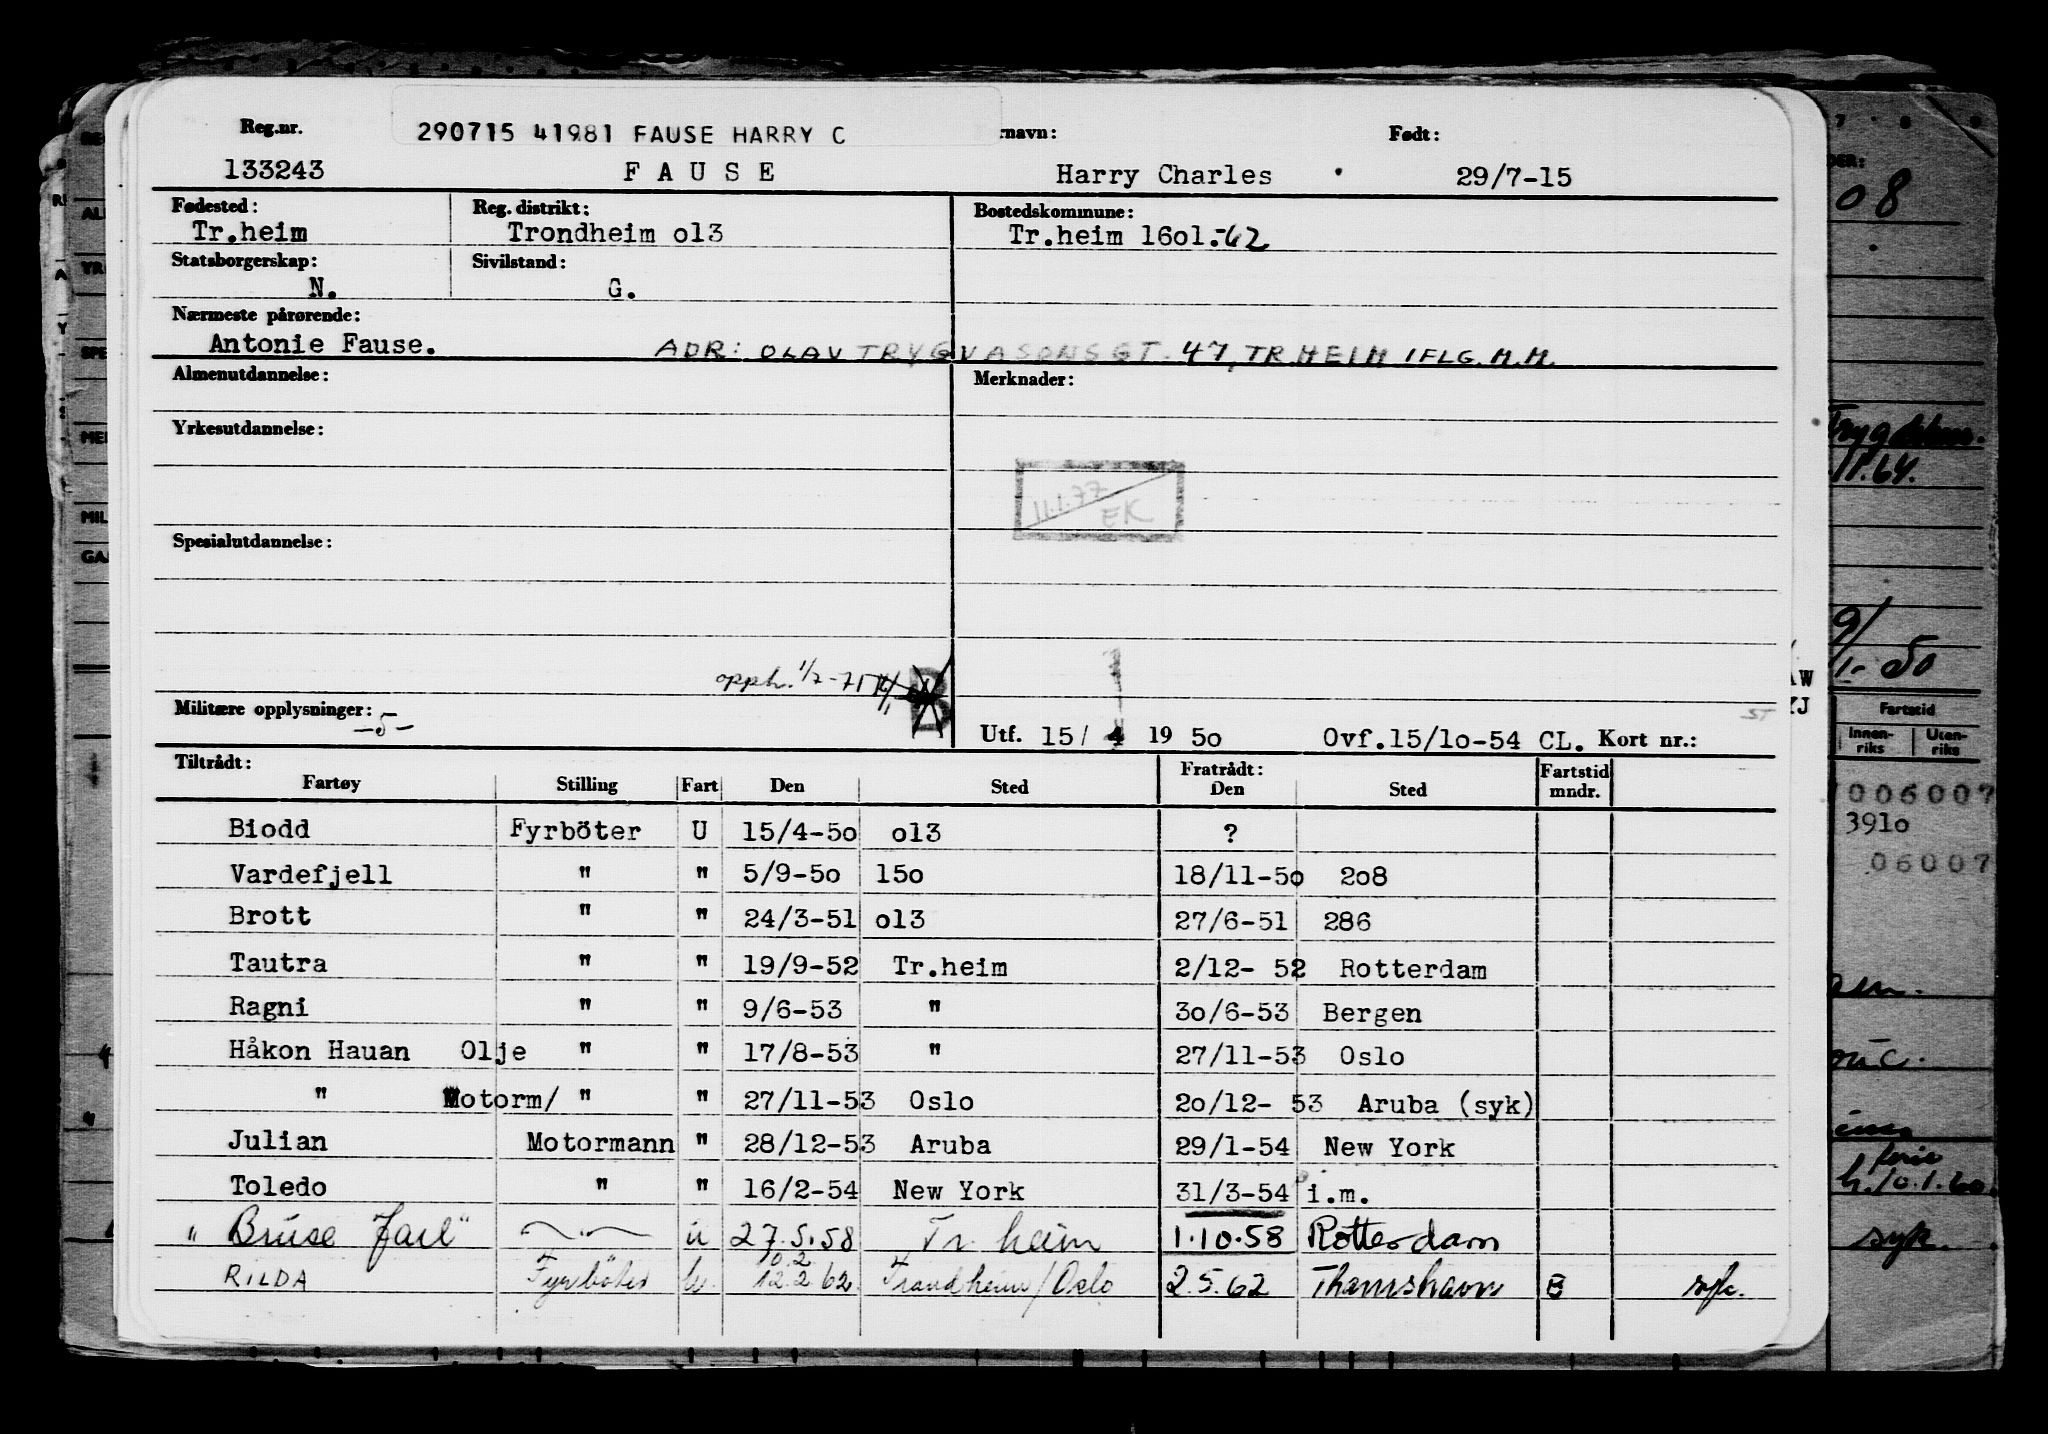 Reg.nr. 290715 41981 FAUSE HARRY C rnavn: Født:
133243 FAUSE Harry Charles 29/7-15
Fødested: Reg. distrikt: Bostedskommune:
Tr.heim Trondheim o13 Tr.heim 16o1.-62
Statsborgerskap: Sivilstand:
N. G.
Nærmeste pårørende:
Antonie Fause. ADR: OLAV TRYGVASONSGT. 47, TR.HEIM IFLG. M.M.
Almenutdannelse: Merknader:
Yrkesutdannelse:
11.1.77
EK
Spesialutdannelse:
opph. 1/7-71
Militære opplysninger:
-5-
Utf. 15/ 4 19 5o Ovf.15/1o-54 CL. Kort nr.:
Tiltrådt: Fratrådt: Fartstid
Fartøy Stilling Fart Den Sted Den Sted mndr.
Biodd Fyrböter U 15/4-5o o13 ?
Vardefjell " " 5/9-5o 15o 18/11-5o 2o8
Brott " " 24/3-51 o13 27/6-51 286
Tautra " " 19/9-52 Tr.heim 2/12- 52 Rotterdam
Ragni " " 9/6-53 " 3o/6-53 Bergen
Håkon Hauan Olje " " 17/8-53 " 27/11-53 Oslo
" Motorm/ " " 27/11-53 Oslo 2o/12- 53 Aruba (syk)
Julian Motormann " 28/12-53 Aruba 29/1-54 New York
Toledo " " 16/2-54 New York 31/3-54 i.m.
"Bruse Jarl" —"— u 27.5.58 Tr.heim 1.10.58 Rotterdam
10.2
RILDA Fyrbøter u. 12.2 62. Trondheim/Oslo 2.5.62 Thamshavn B syk.
08
11.64.
9/
1- 50
Fartstid
Innen-
riks
Uten-
riks
006007
391o
06007
ferie
10.1.60.
syk.